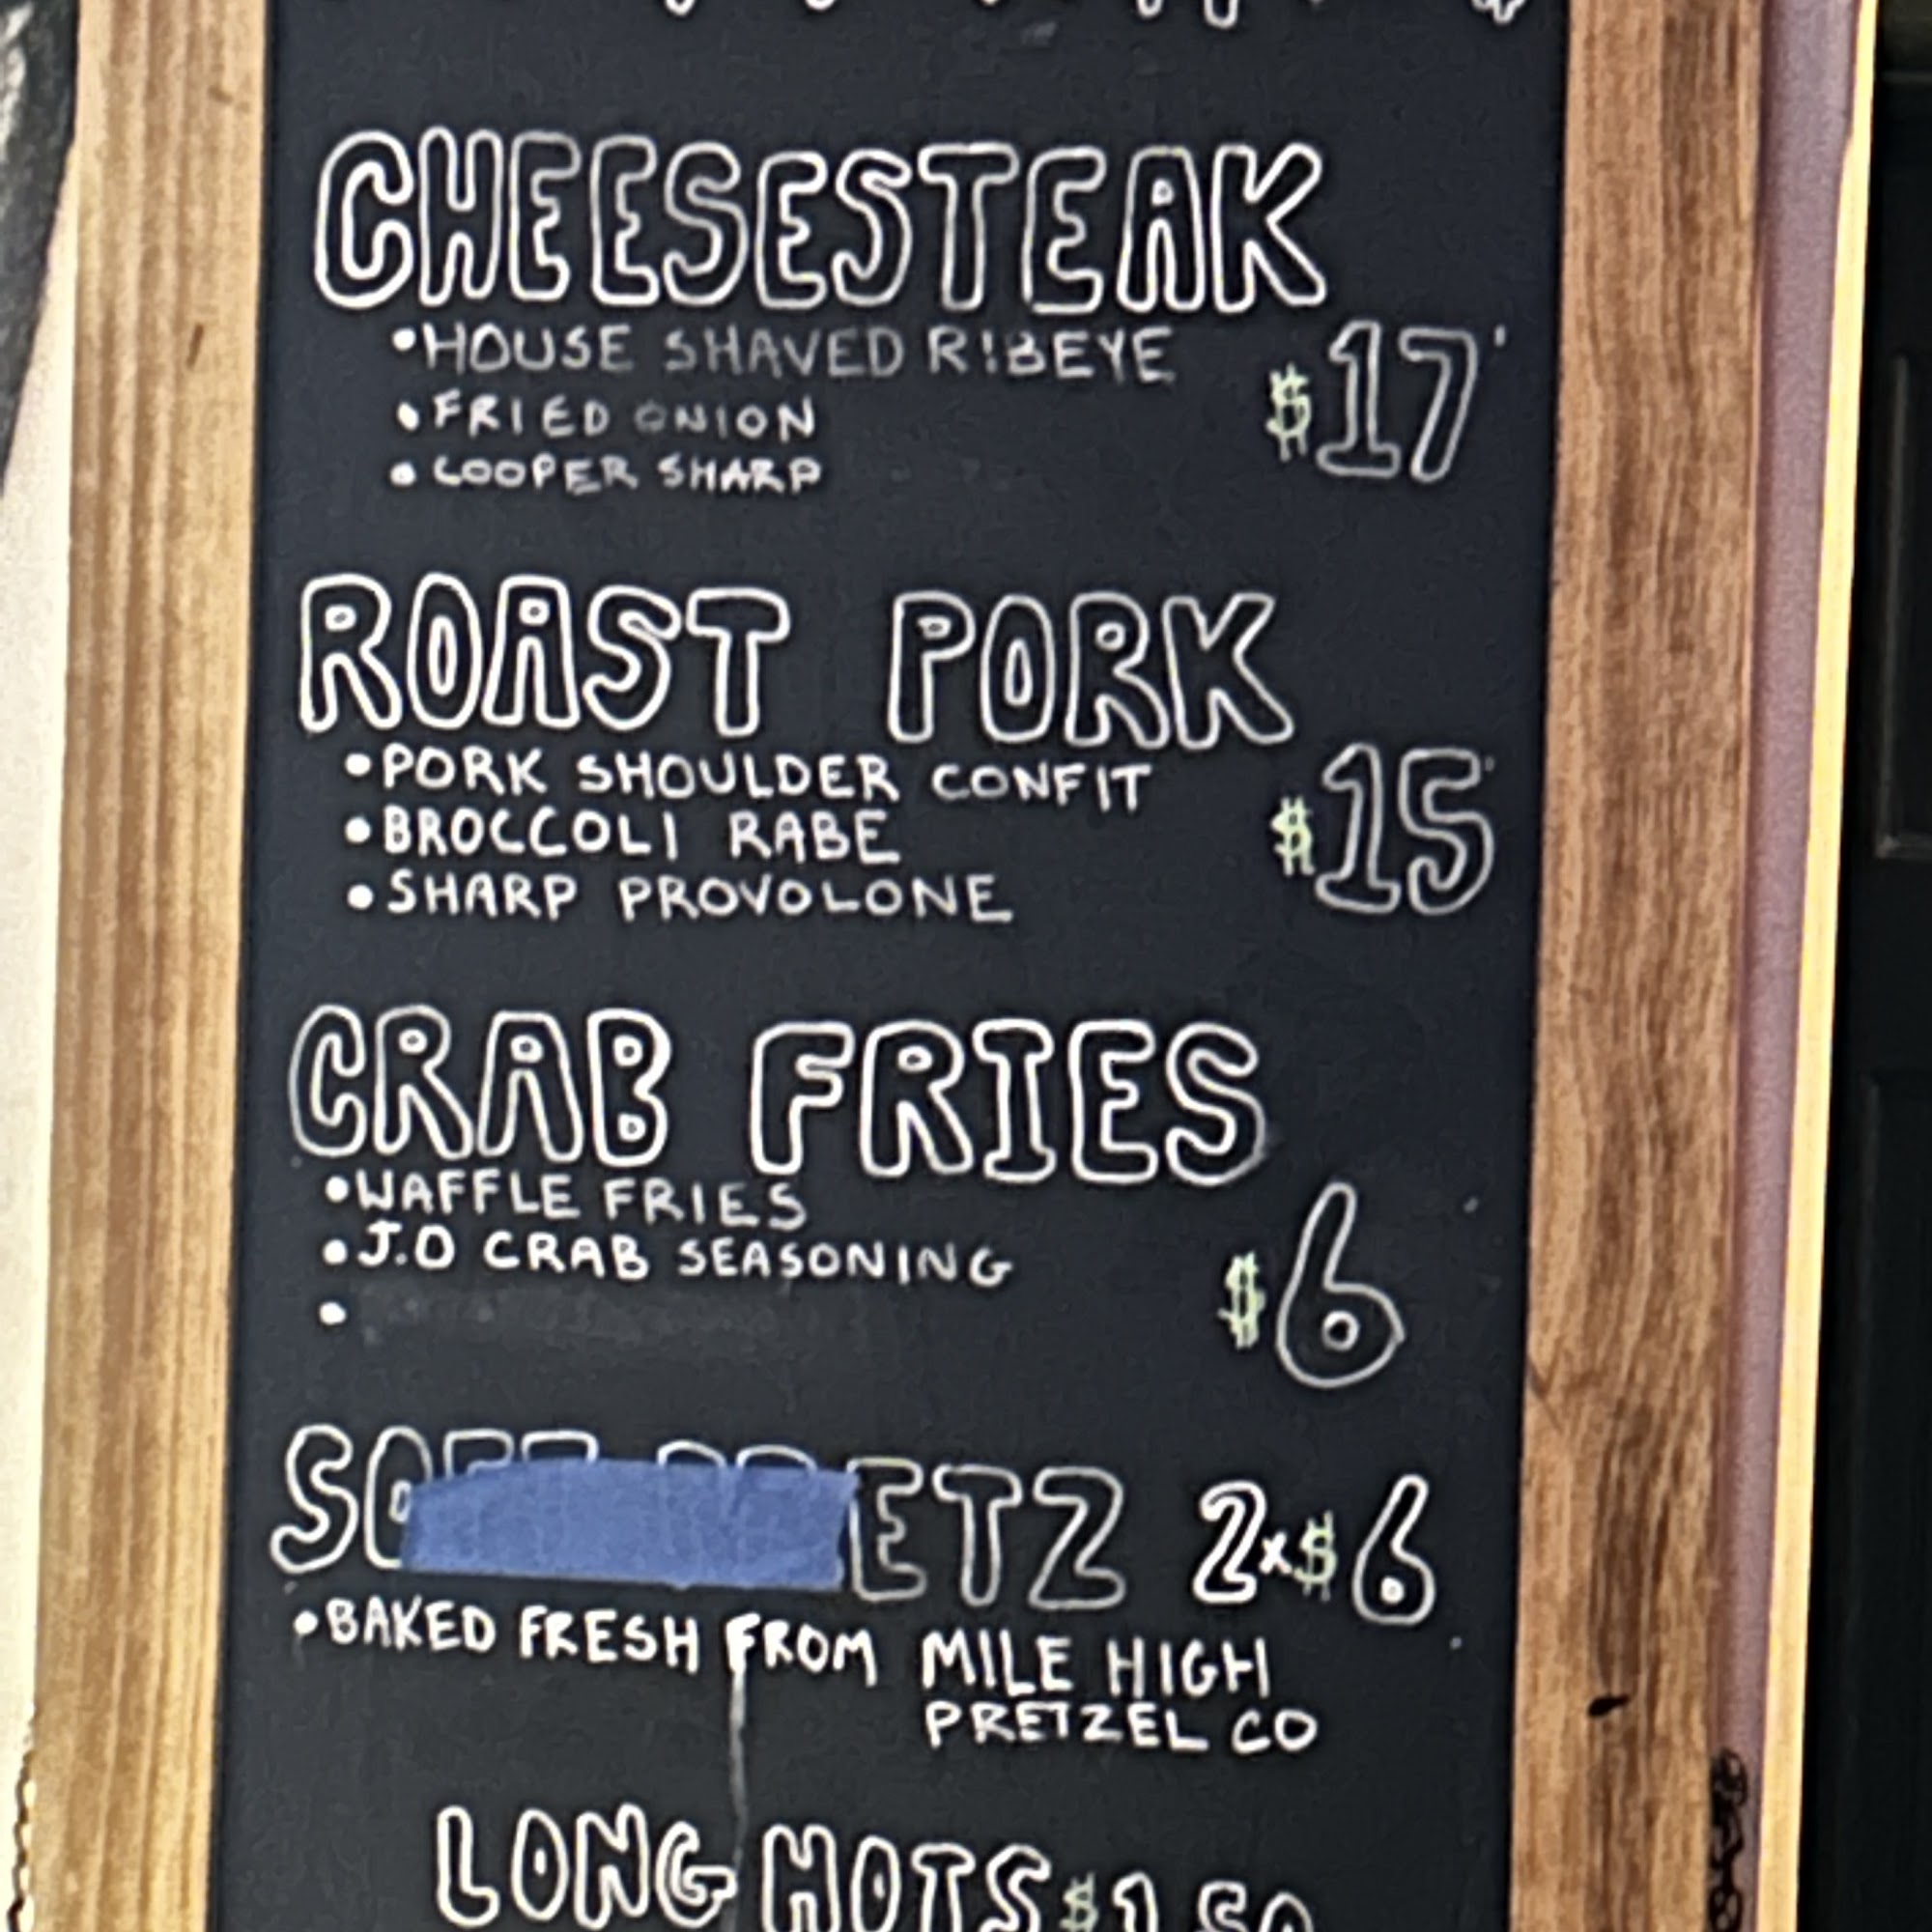 CHEESESTEAK
• HOUSE SHAVED RIBEYE
$17
• FRIED ONION
• COOPER SHARP
ROAST PORK
• PORK SHOULDER CONFIT
$15
• BROCCOLI RABE
• SHARP PROVOLONE
CRAB FRIES
• WAFFLE FRIES
• J.O CRAB SEASONING
$6
•
ETZ 2x$6
• BAKED FRESH FROM MILE HIGH
PRETZEL CO
LONG HOTS $1.50